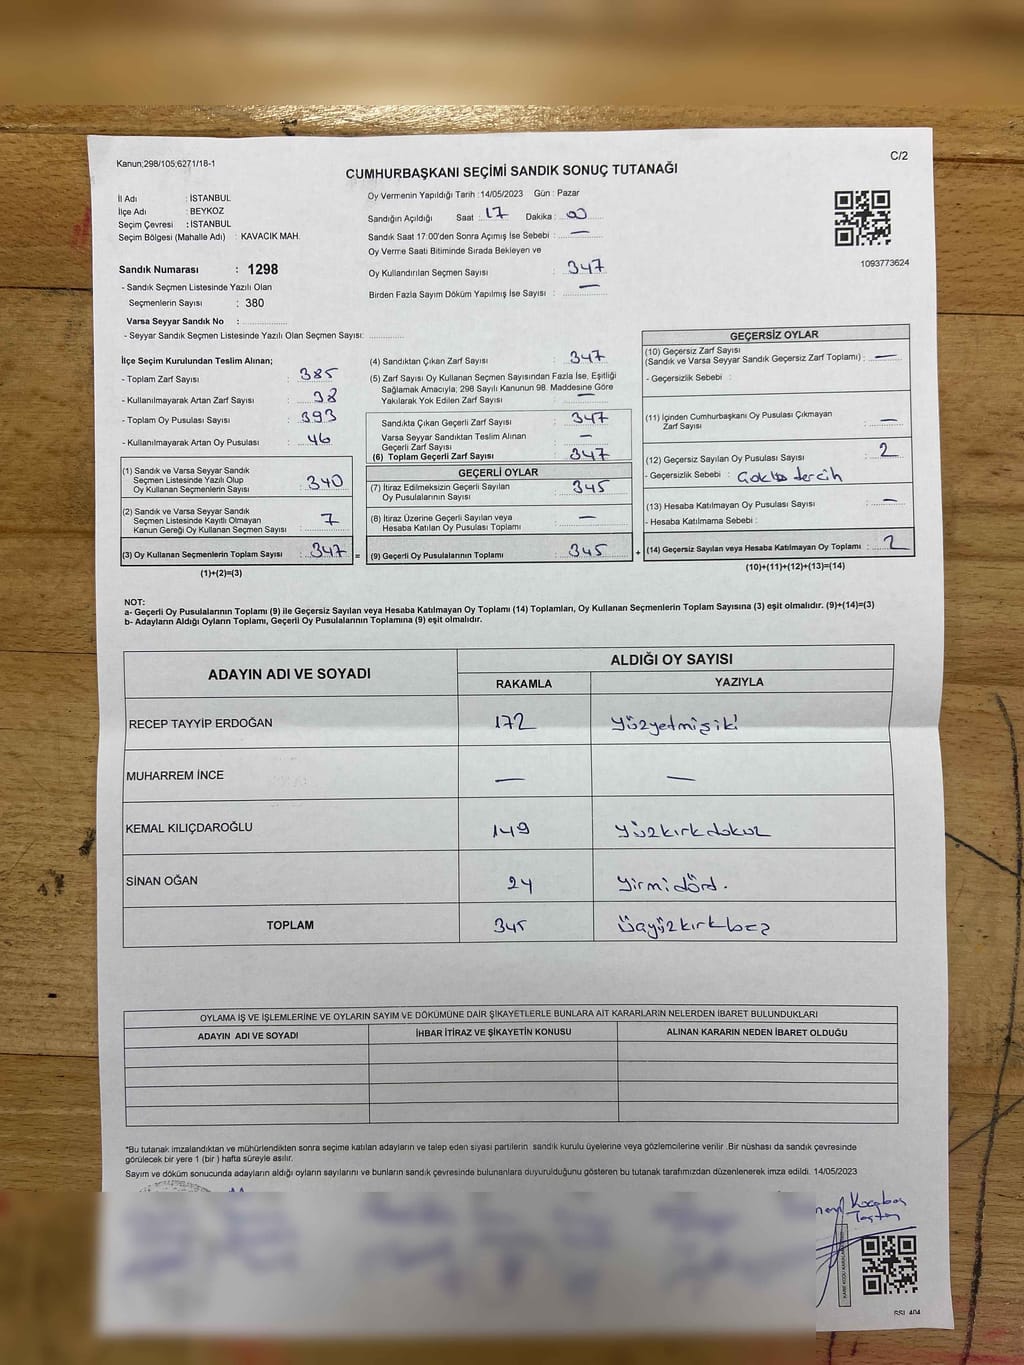 Kanun;298/105;6271/18-1
C/2
CUMHURBAŞKANI SEÇİMİ SANDIK SONUÇ TUTANAĞI
İl Adı : İSTANBUL
İlçe Adı : BEYKOZ
Seçim Çevresi : İSTANBUL
Seçim Bölgesi (Mahalle Adı) : KAVACIK MAH.
Oy Vermenin Yapıldığı Tarih : 14/05/2023 Gün : Pazar
Sandığın Açıldığı Saat : 17 Dakika : 00
Sandık Saat 17.00'den Sonra Açımış İse Sebebi : —
Oy Verme Saati Bitiminde Sırada Bekleyen ve
Oy Kullandırılan Seçmen Sayısı : 347
Birden Fazla Sayım Döküm Yapılmış İse Sayısı : —
1093773624
Sandık Numarası : 1298
- Sandık Seçmen Listesinde Yazılı Olan
Seçmenlerin Sayısı : 380
Varsa Seyyar Sandık No :
- Seyyar Sandık Seçmen Listesinde Yazılı Olan Seçmen Sayısı:
İlçe Seçim Kurulundan Teslim Alınan;
- Toplam Zarf Sayısı : 385
- Kullanılmayarak Artan Zarf Sayısı : 38
- Toplam Oy Pusulası Sayısı : 393
- Kullanılmayarak Artan Oy Pusulası : 46
(1) Sandık ve Varsa Seyyar Sandık
Seçmen Listesinde Yazılı Olup
Oy Kullanan Seçmenlerin Sayısı : 340
(2) Sandık ve Varsa Seyyar Sandık
Seçmen Listesinde Kayıtlı Olmayan
Kanun Gereği Oy Kullanan Seçmen Sayısı : 7
(3) Oy Kullanan Seçmenlerin Toplam Sayısı : 347 =
(1)+(2)=(3)
(4) Sandıktan Çıkan Zarf Sayısı : 347
(5) Zarf Sayısı Oy Kullanan Seçmen Sayısından Fazla İse, Eşitliği
Sağlamak Amacıyla; 298 Sayılı Kanunun 98. Maddesine Göre
Yakılarak Yok Edilen Zarf Sayısı : —
Sandıkta Çıkan Geçerli Zarf Sayısı : 347
Varsa Seyyar Sandıktan Teslim Alınan
Geçerli Zarf Sayısı : —
(6) Toplam Geçerli Zarf Sayısı : 347
GEÇERLİ OYLAR
(7) İtiraz Edilmeksizin Geçerli Sayılan
Oy Pusulalarının Sayısı : 345
(8) İtiraz Üzerine Geçerli Sayılan veya
Hesaba Katılan Oy Pusulası Toplamı : —
(9) Geçerli Oy Pusulalarının Toplamı : 345 +
GEÇERSİZ OYLAR
(10) Geçersiz Zarf Sayısı
(Sandık ve Varsa Seyyar Sandık Geçersiz Zarf Toplamı) : —
- Geçersizlik Sebebi :
(11) İçinden Cumhurbaşkanı Oy Pusulası Çıkmayan
Zarf Sayısı : —
(12) Geçersiz Sayılan Oy Pusulası Sayısı : 2
- Geçersizlik Sebebi : tercih
(13) Hesaba Katılmayan Oy Pusulası Sayısı : —
- Hesaba Katılmama Sebebi :
(14) Geçersiz Sayılan veya Hesaba Katılmayan Oy Toplamı : 2
(10)+(11)+(12)+(13)=(14)
NOT:
a- Geçerli Oy Pusulalarının Toplamı (9) ile Geçersiz Sayılan veya Hesaba Katılmayan Oy Toplamı (14) Toplamları, Oy Kullanan Seçmenlerin Toplam Sayısına (3) eşit olmalıdır. (9)+(14)=(3)
b- Adayların Aldığı Oyların Toplamı, Geçerli Oy Pusulalarının Toplamına (9) eşit olmalıdır.
ADAYIN ADI VE SOYADI ALDIĞI OY SAYISI
RAKAMLA YAZIYLA
RECEP TAYYİP ERDOĞAN 172 Yüzyetmişiki
MUHARREM İNCE — —
KEMAL KILIÇDAROĞLU 149 Yüzkırkdokuz
SİNAN OĞAN 24 Yirmidörd.
TOPLAM 345 Üçyüzkırkbeş
OYLAMA İŞ VE İŞLEMLERİNE VE OYLARIN SAYIM VE DÖKÜMÜNE DAİR ŞİKAYETLERLE BUNLARA AİT KARARLARIN NELERDEN İBARET BULUNDUKLARI
ADAYIN ADI VE SOYADI İHBAR İTİRAZ VE ŞİKAYETİN KONUSU ALINAN KARARIN NEDEN İBARET OLDUĞU
*Bu tutanak imzalandıktan ve mühürlendikten sonra seçime katılan adayların ve talep eden siyasi partilerin sandık kurulu üyelerine veya gözlemcilerine verilir .Bir nüshası da sandık çevresinde
görülecek bir yere 1 (bir ) hafta süreyle asılır.
Sayım ve döküm sonucunda adayların aldığı oyların sayılarını ve bunların sandık çevresinde bulunanlara duyurulduğunu gösteren bu tutanak tarafımızdan düzenlenerek imza edildi. 14/05/2023